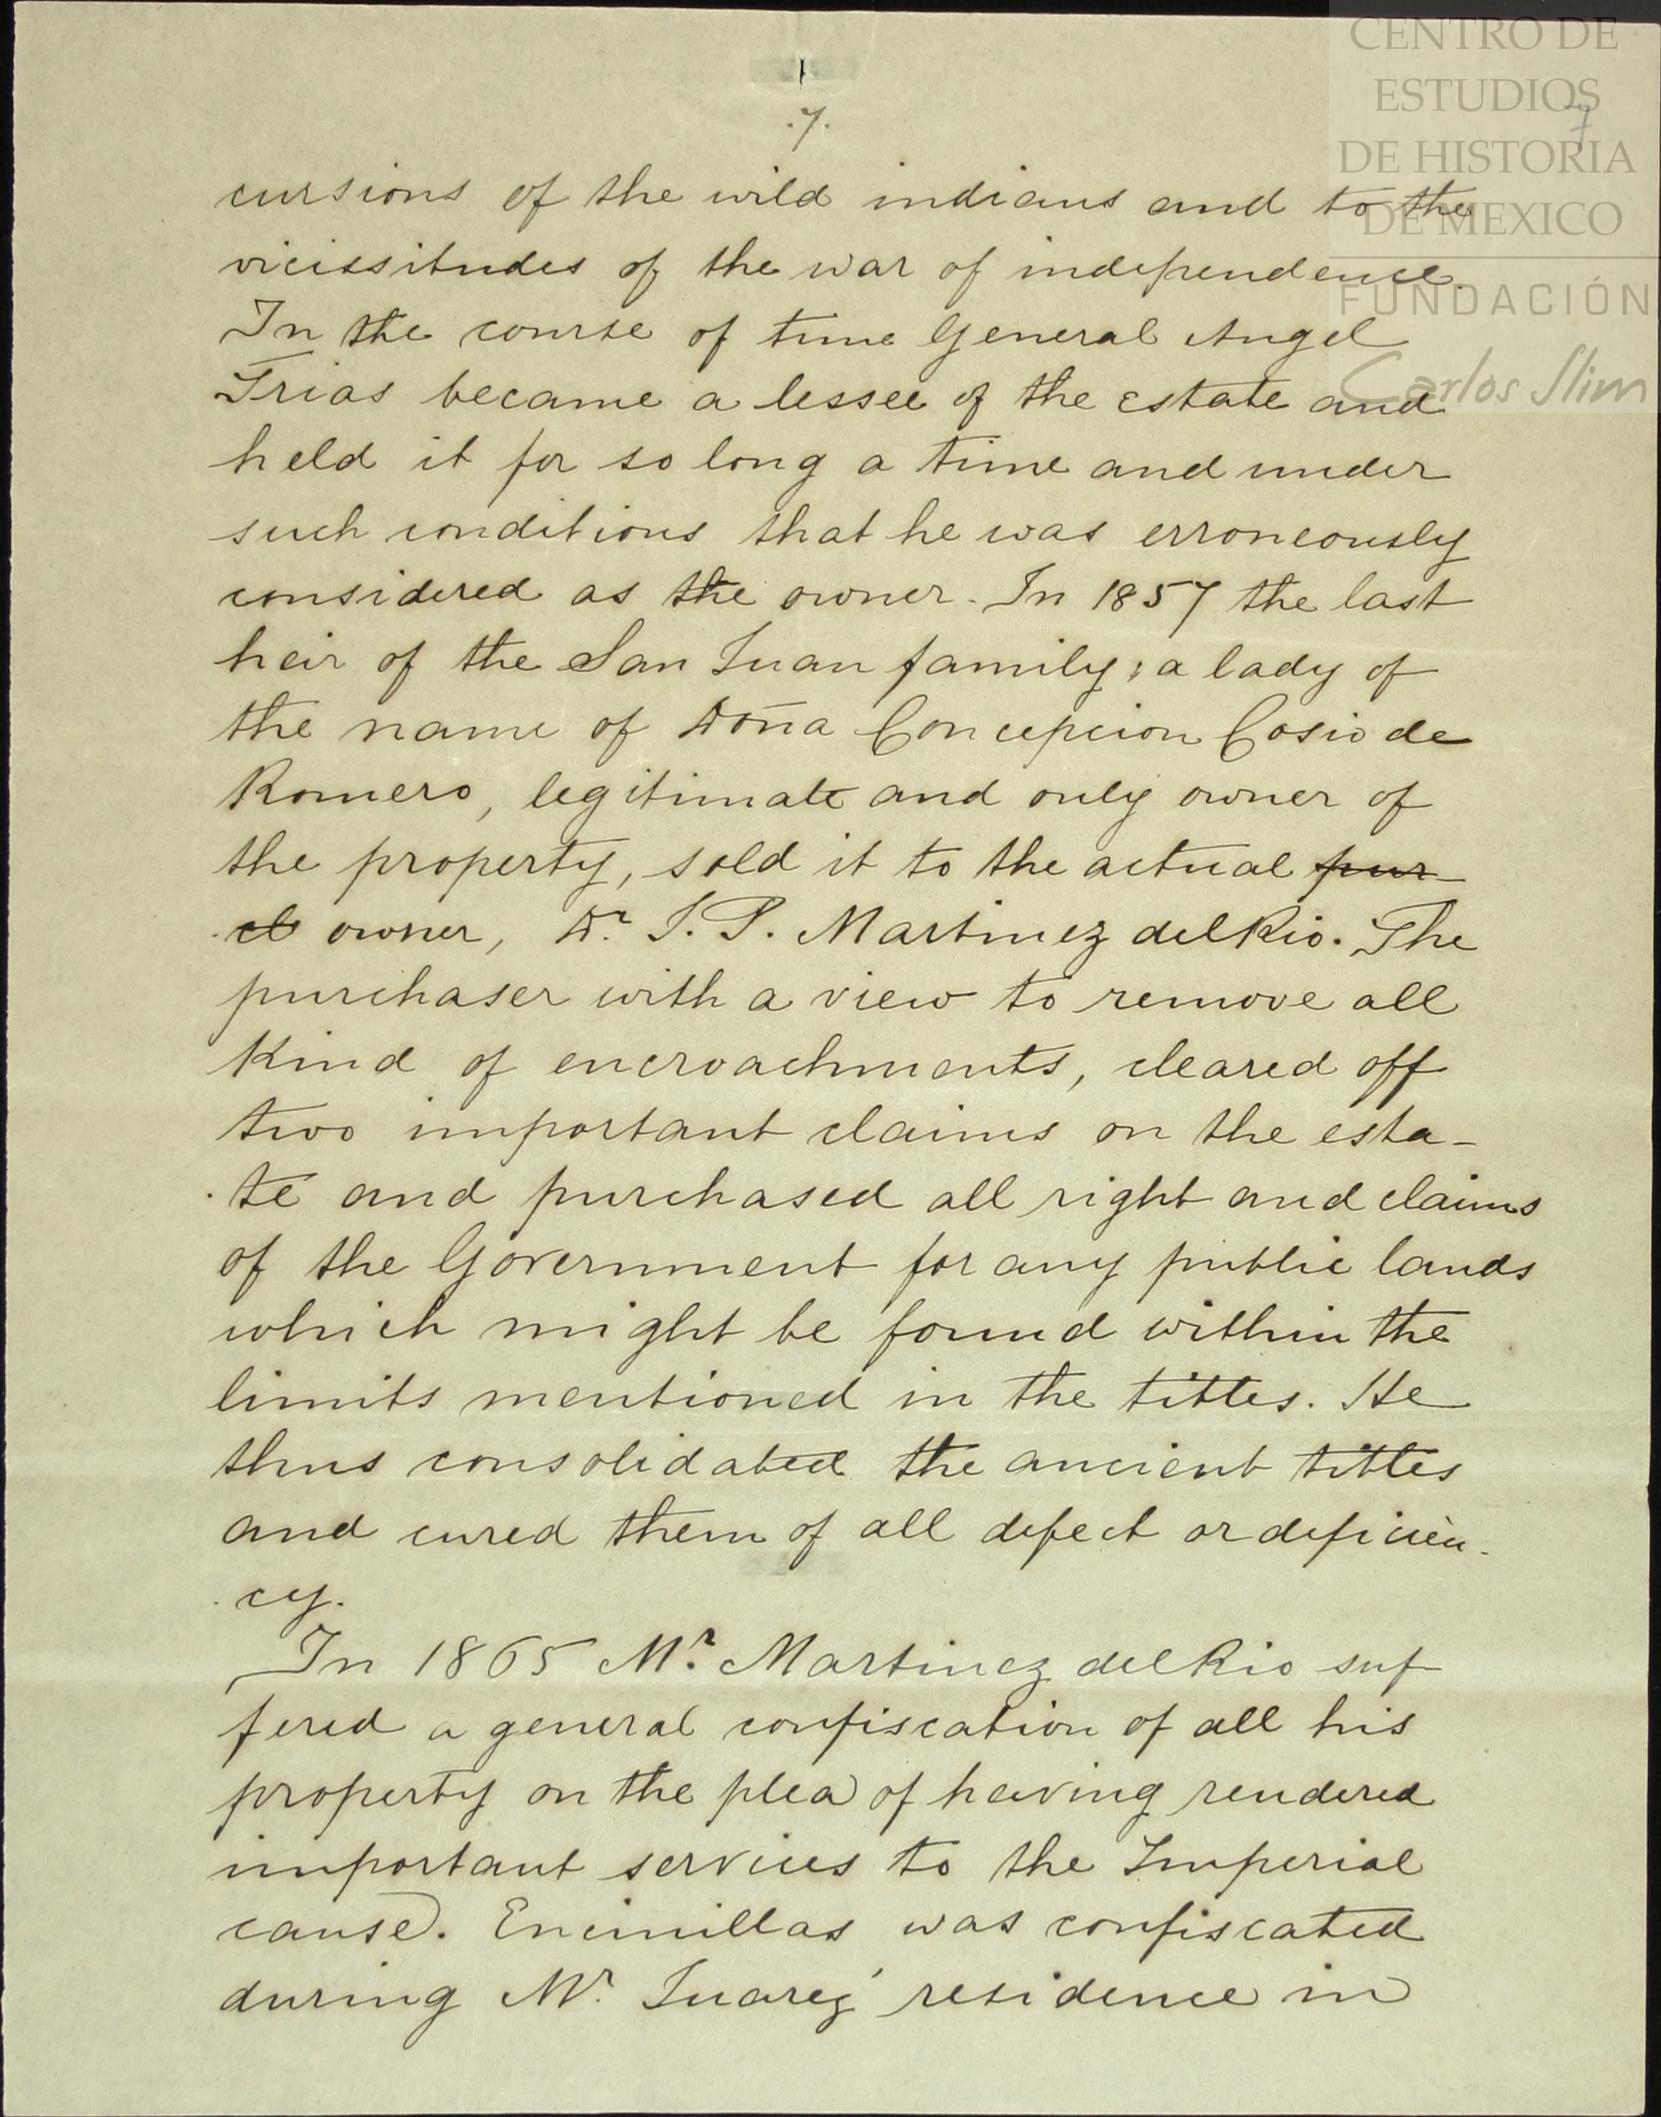 CENTRO DE
ESTUDIOS
DE HISTORIA
DE MEXICO
FUNDACIÓN
Carlos Slim
7
.7.
cursions of the wild indians and to the
vicissitudes of the war of independence.
In the course of time General Angel
Trias became a lessee of the estate and
held it for so long a time and under
such conditions that he was erroneously
considered as the owner. In 1857 the last
heir of the San Juan family, a lady of
the name of Doña Concepcion Cosio de
Romero, legitimate and only owner of
the property, sold it to the actual pur-
owner, Dr. J. P. Martinez del Rio. The
purchaser with a view to remove all
Kind of encroachments, cleared off
two important claims on the esta-
te and purchased all right and claims
of the Government for any public lands
which might be found within the
limits mentioned in the tittles. He
thus consolidated the ancient tittles
and cured them of all defect or deficien-
cy.
In 1865 Mr. Martinez del Rio suf
fered a general confiscation of all his
property on the plea of having rendered
important services to the Imperial
cause. Encinillas was confiscated
during Mr. Juarez' residence in